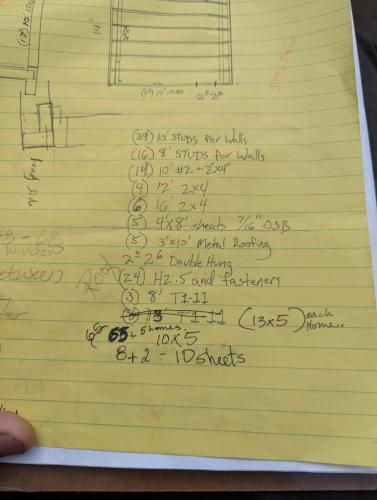 14'
(19) 10' studs
2⁰ 2⁶
(39) 10' STUDS for Walls
(16) 8' STUDS for Walls
(14) 10' #2 - 2"x4"
(4) 12' 2x4
(6) 16' 2x4
(5) 4'x8' sheats 7/16" OSB
(5) 3'x10' Metal Roofing
2⁰ 2⁶ Double Hung
(24) H2.5 and fasteners
(3) 8' T1-11
T1-11 (13x5) each Home.
65 + 5 homes.
10x5
8+2 = 10 sheets
window
etween